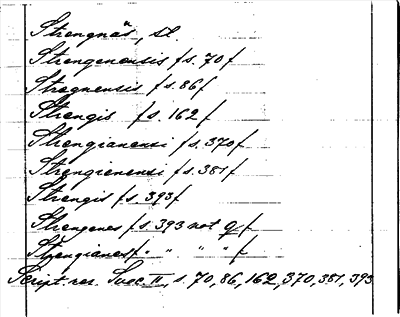 Strengnäs, St.
Strengenensis /s. 70/
Stregnensis /s. 86/
Strengis /s. 162/
Strengianensi /s. 370/
Strengienensi /s. 381/
Strengis /s. 393/
Strengenes /s. 393 not q/
Strengianes/ " " " "/
Script. rer. Svec. II, s. 70, 86, 162, 370, 381, 393